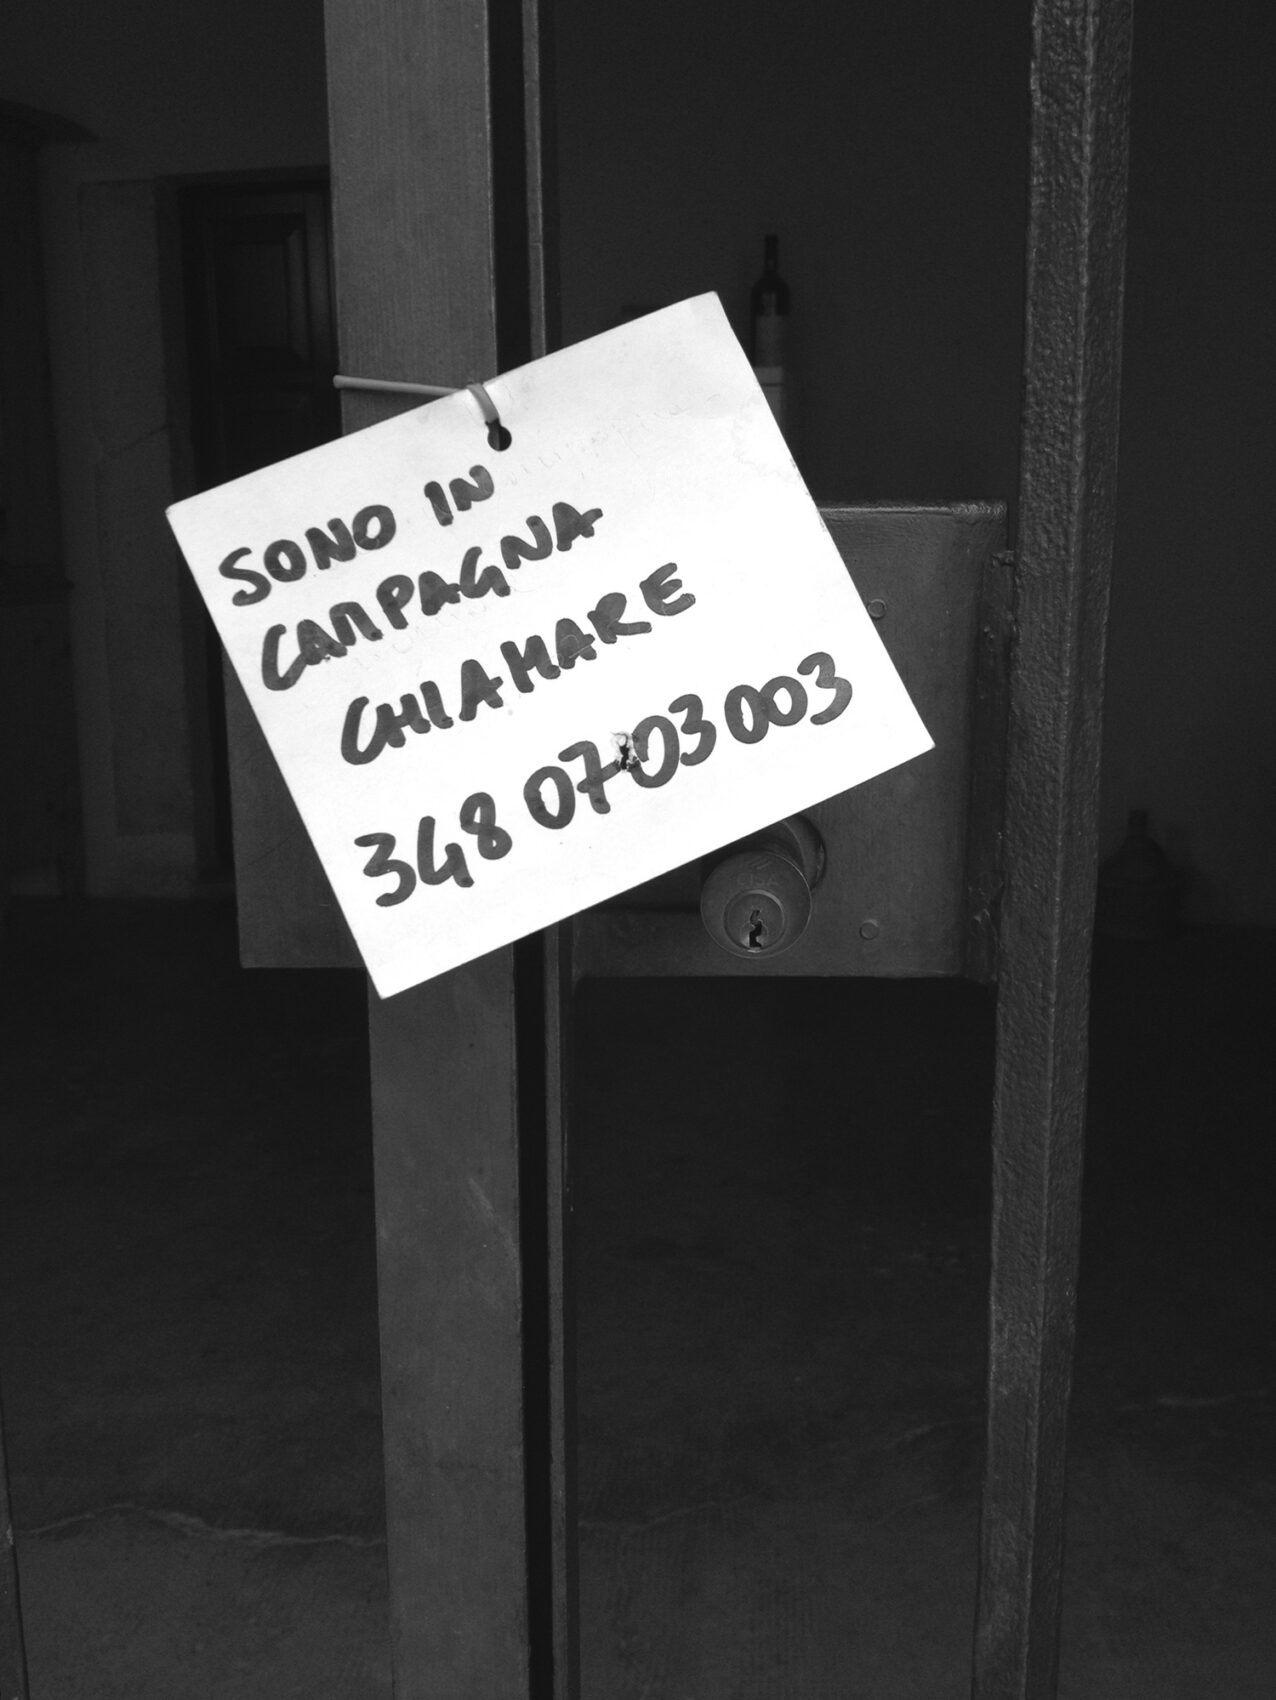 SONO IN
CAMPAGNA
CHIAMARE
348 0703 003